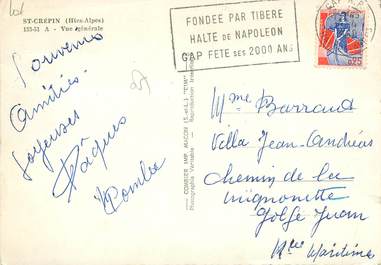 ST-CRÉPIN (Htes-Alpes)
153-51 A - Vue générale
FONDÉE PAR TIBERE
HALTE DE NAPOLEON
GAP FETE SES 2000 ANS
0,25
Souvenirs
Amitiés.
Joyeuses
Pâques
COMBIER IMP. MACON (S.-et-L.) "CIM"
Photographie Véritable
Reproduction Interdite
Mme Barraud
Villa Jean-Andréas
Chemin de la
Mignonette
Golfe Juan
Alpes Maritimes